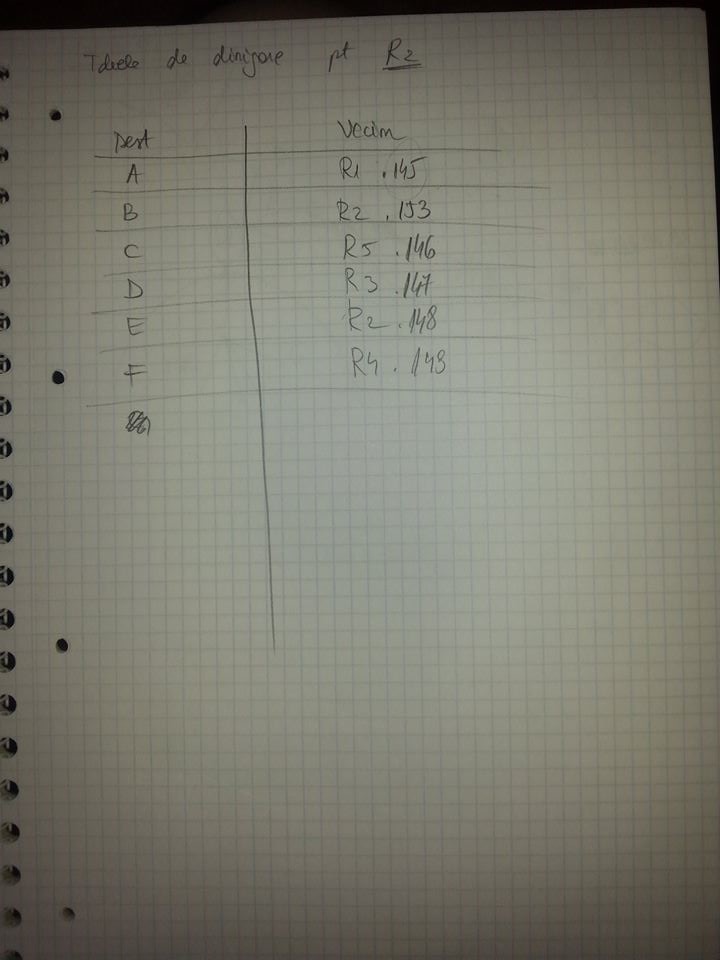 Tabele de dirijare pt R2
Dest Vecini
A R1 .145
B R2 .153
C R5 .146
D R3 .147
E R2 .148
F R4 .149